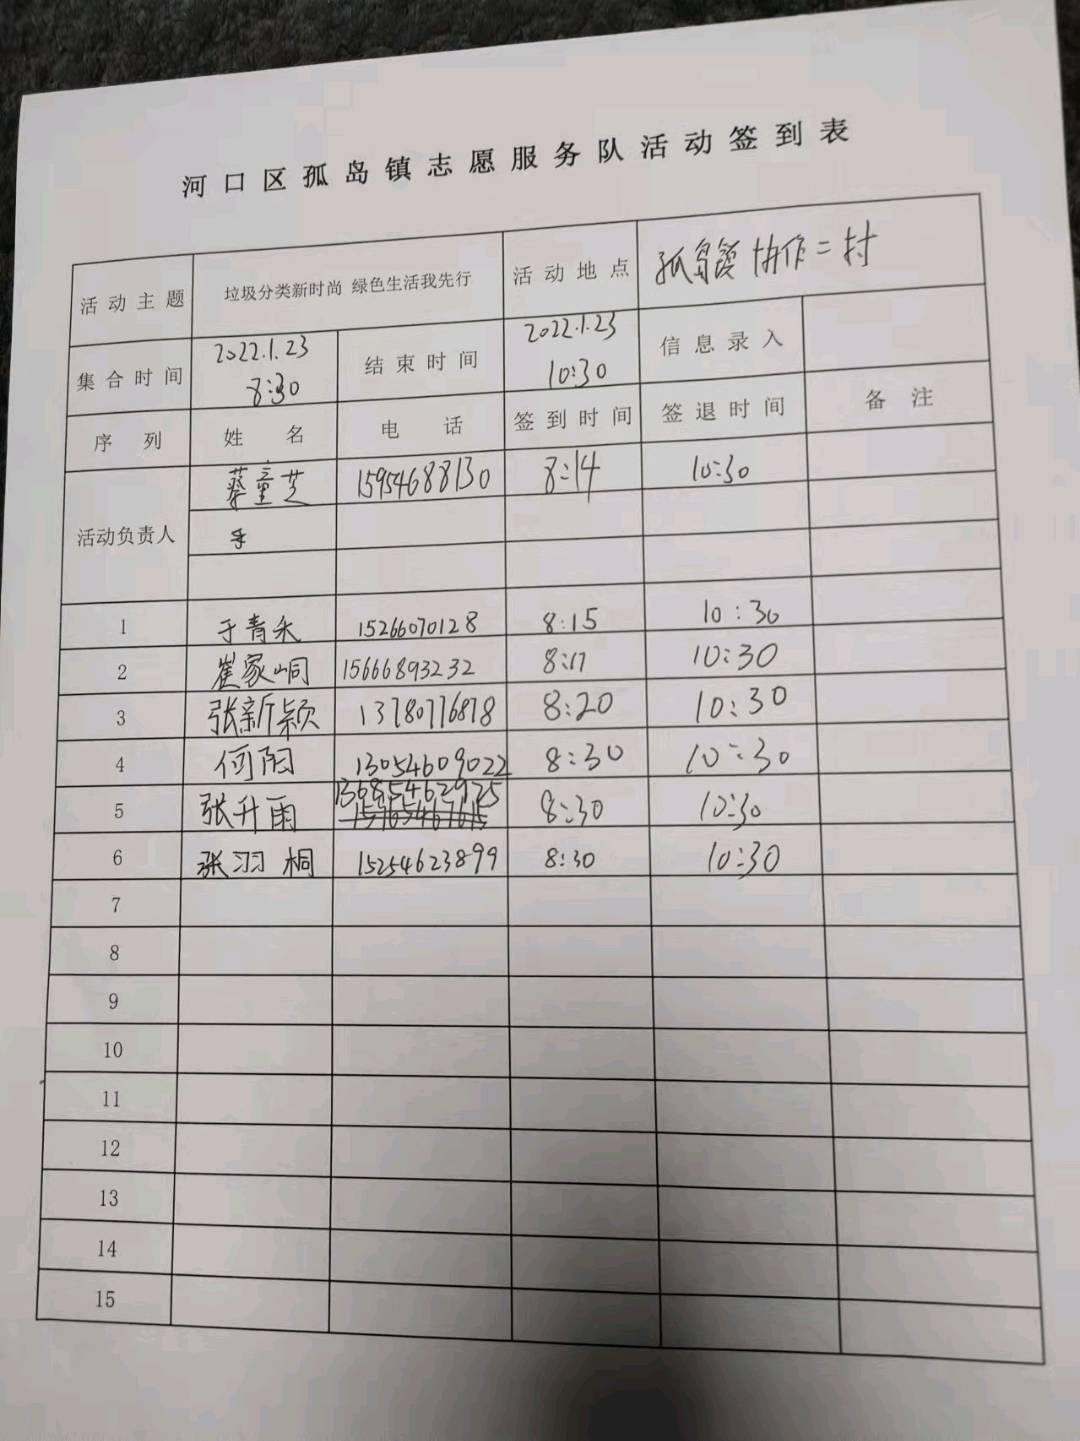 河口区孤岛镇志愿服务队活动签到表
活动主题 垃圾分类新时尚 绿色生活我先行 活动地点 孤岛镇协作二村
集合时间 2022.1.23 8:30 结束时间 2022.1.23 10:30 信息录入
序列 姓名 电话 签到时间 签退时间 备注
活动负责人 蔡童芝 15954688130 8:14 10:30
1 于青禾 15266070128 8:15 10:30
2 崔家峒 15666893232 8:17 10:30
3 张新颖 13780776878 8:20 10:30
4 何阳 13054609022 8:30 10:30
5 张升雨 13685462925 8:30 10:30
6 张羽桐 15254623899 8:30 10:30
7
8
9
10
11
12
13
14
15